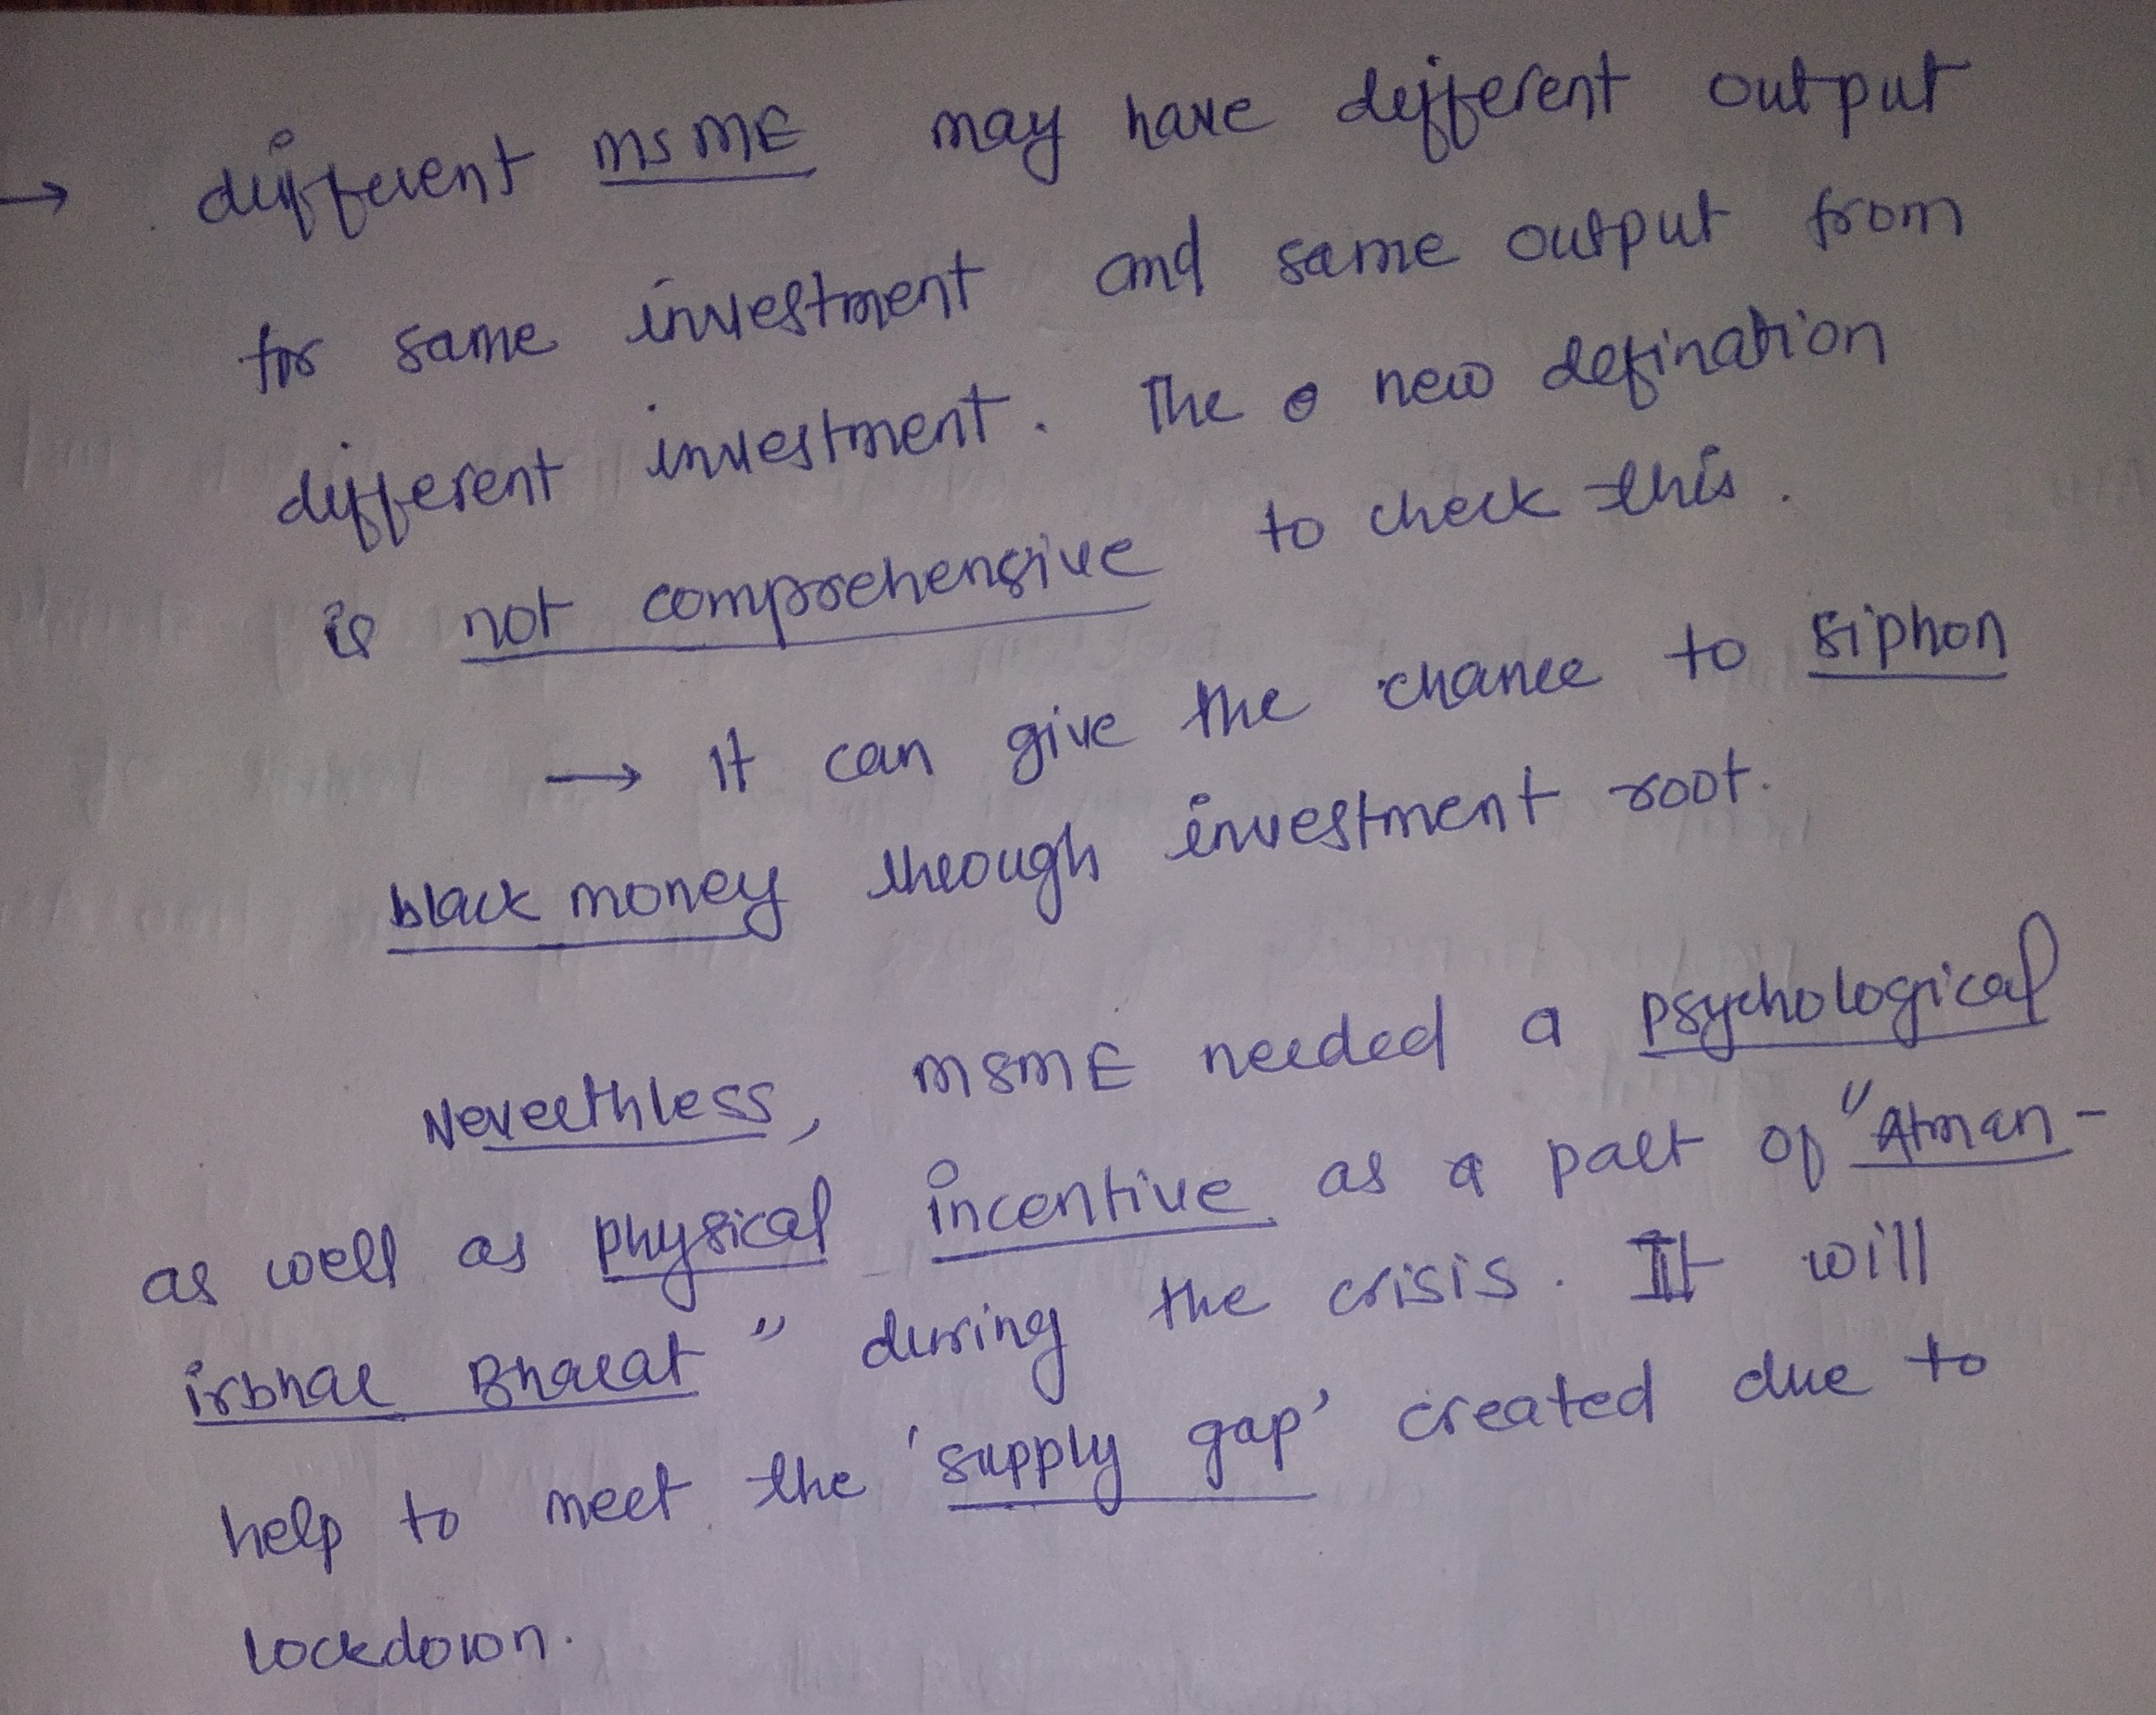 → different MSME may have different output
for same investment and same output from
different investment. The new defination
is not comprehensive to check this.
→ It can give the chance to siphon
black money through investment root.
Neverthless, MSME needed a psychological
as well as physical incentive as a part of "Atman-
irbhar Bharat" during the crisis. It will
help to meet the 'supply gap' created due to
lockdown.